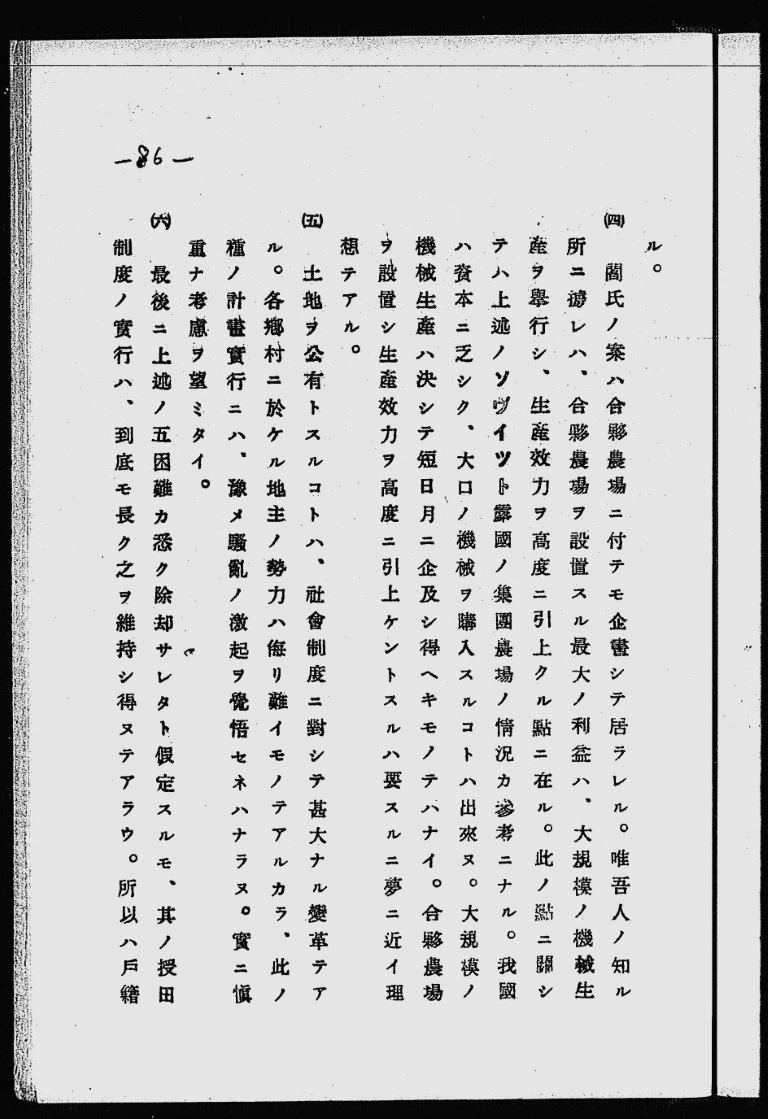 —86—
ル。
㈣　閻氏ノ案ハ合夥農場ニ付テモ企畫シテ居ラレル。唯吾人ノ知ル
所ニ據レハ、合夥農場ヲ設置スル最大ノ利益ハ、大規模ノ機械生
産ヲ擧行シ、生産效力ヲ高度ニ引上クル點ニ在ル。此ノ點ニ關シ
テハ上述ノソヴイツト露國ノ集團農場ノ情況カ參考ニナル。我國
ハ資本ニ乏シク、大口ノ機械ヲ購入スルコトハ出來ヌ。大規模ノ
機械生産ハ決シテ短日月ニ企及シ得ヘキモノテハナイ。合夥農場
ヲ設置シ生産效力ヲ高度ニ引上ケントスルハ要スルニ夢ニ近イ理
想テアル。
㈤　土地ヲ公有トスルコトハ、社會制度ニ對シテ甚大ナル變革テア
ル。各鄕村ニ於ケル地主ノ勢力ハ侮リ難イモノテアルカラ、此ノ
種ノ計畫實行ニハ、豫メ騷亂ノ激起ヲ覺悟セネハナラヌ。實ニ愼
重ナ考慮ヲ望ミタイ。
㈥　最後ニ上述ノ五困難カ悉ク除却サレタト假定スルモ、其ノ授田
制度ノ實行ハ、到底モ長ク之ヲ維持シ得ヌテアラウ。所以ハ戶籍